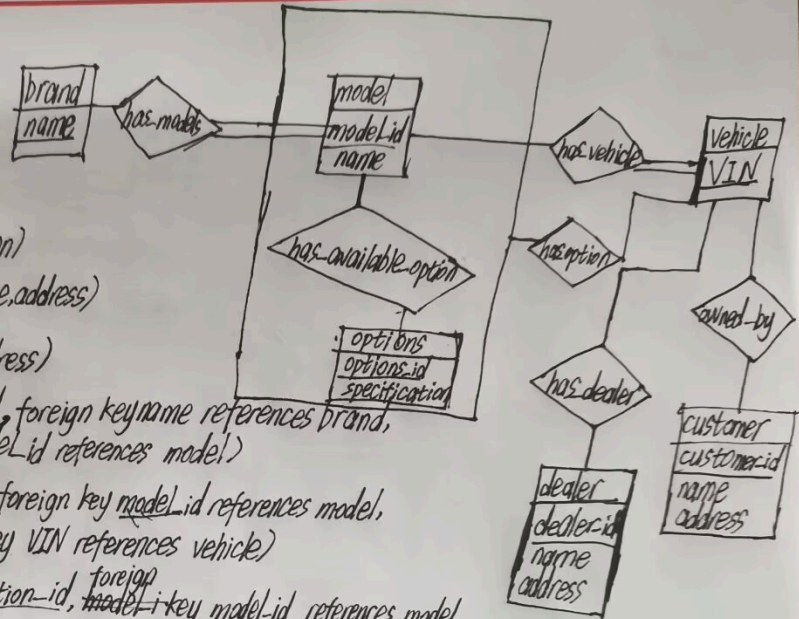 brand
name
has_models
model
model_id
name
has_vehicle
vehicle
VIN
has_available_option
has_option
owned_by
options
options_id
specification
has_dealer
customer
customer_id
name
address
dealer
dealer_id
name
address
on)
e, address)
ress)
, foreign key name references brand,
el_id references model)
foreign key model_id references model,
ey VIN references vehicle)
tion_id, foreign key model_id references model